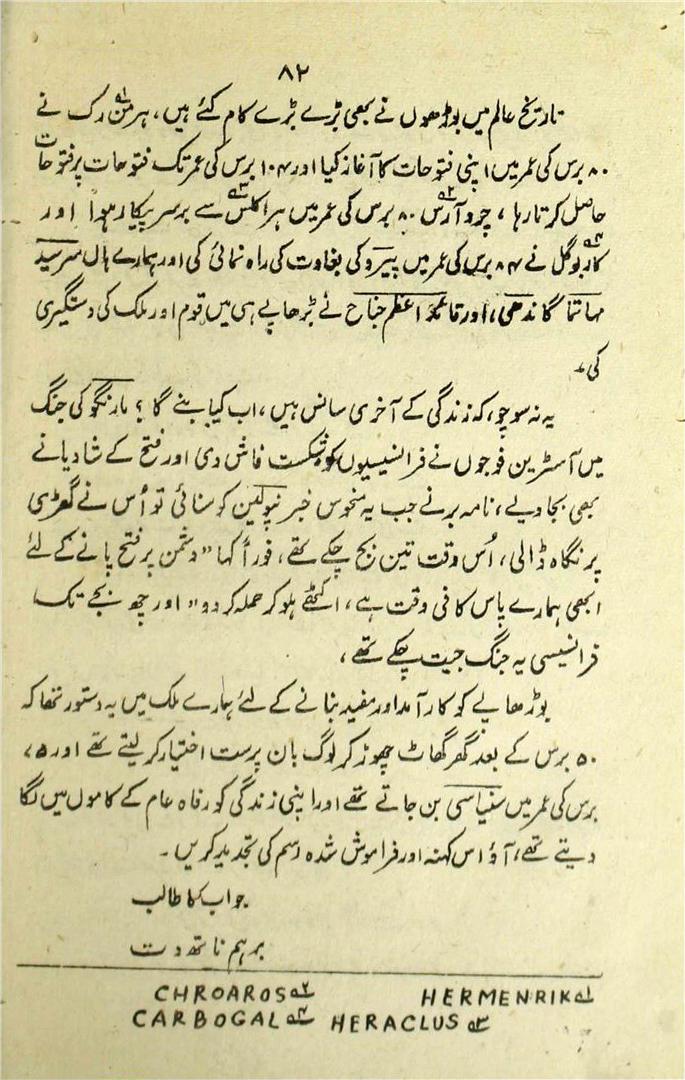 ۸۲
تاریخ عالم میں بوڑھوں نے بھی بڑے بڑے کام کئے ہیں، ہرمن۱؎ رک نے
۸۰ برس کی عمر میں اپنی فتوحات کا آغاز کیا اور ۱۰۴ برس کی عمر تک فتوحات پر فتوحات
حاصل کرتا رہا، چروآرس۲؎ ۸۰ برس کی عمر میں ہراکلس۳؎ سے برسر پیکار ہوا اور
کاربوگل۴؎ نے ۸۴ برس کی عمر میں پیرو کی بغاوت کی راہ نمائی کی اور ہمارے ہاں سرسید
مہاتما گاندھی، اور قائد اعظم جناح نے بڑھاپے ہی میں قوم اور ملک کی دستگیری
کی۔
یہ نہ سوچو، کہ زندگی کے آخری سانس ہیں، اب کیا بنے گا؟ مارنگو کی جنگ
میں آسٹرین فوجوں نے فرانسیسیوں کو شکست فاش دی اور فتح کے شادیانے
بھی بجا دیے، نامہ بر نے جب یہ منحوس خبر نپولین کو سنائی تو اُس نے گھڑی
پر نگاہ ڈالی، اُس وقت تین بج چکے تھے، فوراً کہا "دشمن پر فتح پانے کے لئے
ابھی ہمارے پاس کافی وقت ہے، اکٹھے ہو کر حملہ کر دو" اور چھ بجے تک
فرانسیسی یہ جنگ جیت چکے تھے،
بوڑھاپے کو کار آمد اور مفید بنانے کے لئے ہمارے ملک میں یہ دستور تھا کہ
۵۰ برس کے بعد گھر گھاٹ چھوڑ کر لوگ بان پرست اختیار کر لیتے تھے اور ۷۵
برس کی عمر میں سنیاسی بن جاتے تھے اور اپنی زندگی کو رفاہ عام کے کاموں میں لگا
دیتے تھے، آؤ اس کہنہ اور فراموش شدہ رسم کی تجدید کریں۔
جواب کا طالب
برہم ناتھ دت
۱؎ HERMENRIK ۲؎ CHROAROS
۳؎ HERACLUS ۴؎ CARBOGAL